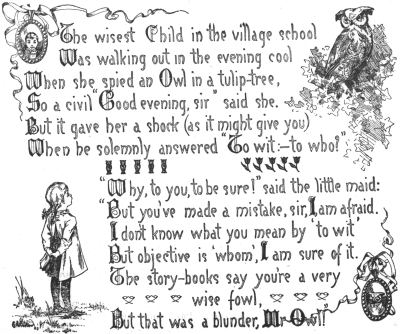 The wisest Child in the village school
Was walking out in the evening cool
When she spied an Owl in a tulip-tree,
So a civil "Good evening, sir" said she.
But it gave her a shock (as it might give you)
When he solemnly answered "To wit:—to who?"
"Why, to you, to be sure!" said the little maid:
"But you've made a mistake, sir, I am afraid.
I don't know what you mean by 'to wit'
But objective is 'whom', I am sure of it.
The story-books say you're a very
wise fowl,
But that was a blunder, Mr Owl!"